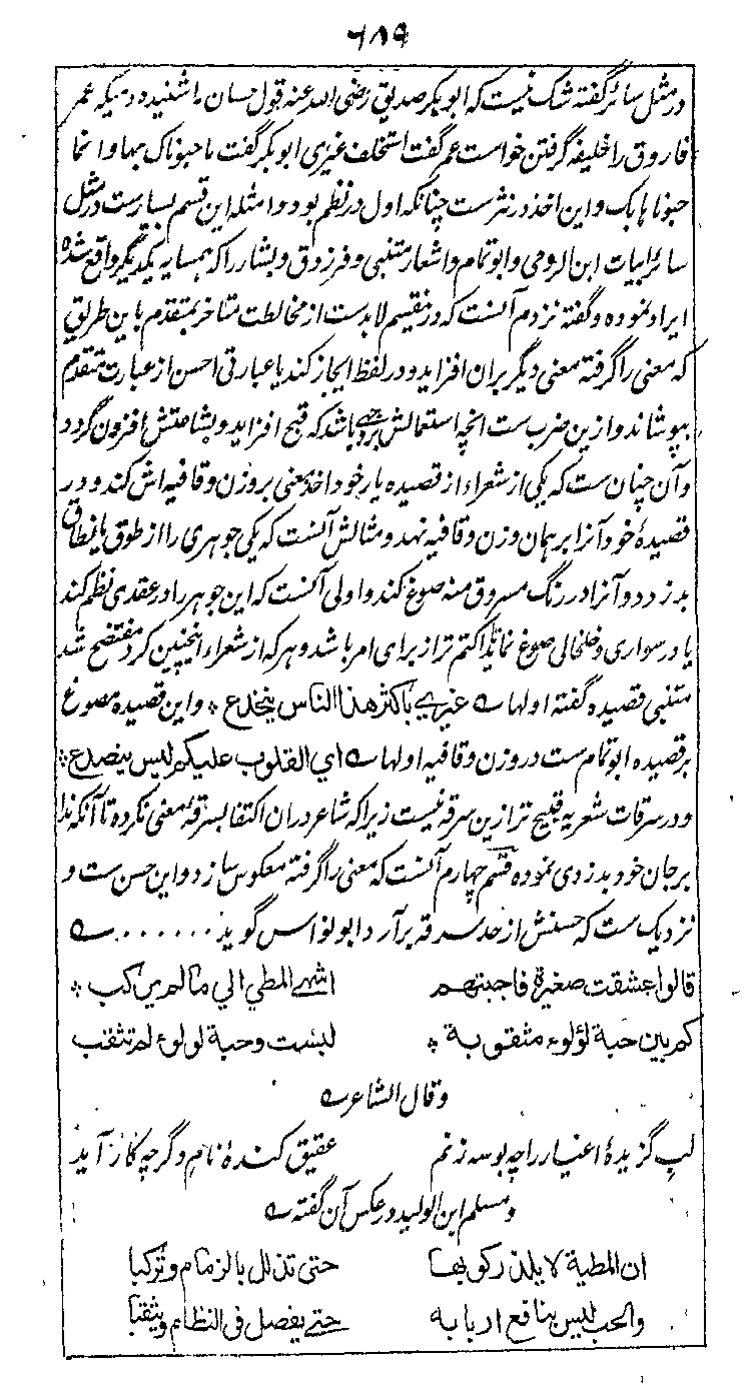 ۶۸۹
در مثل سائر گفته شک نیست که ابوبکر صدیق رضی الله عنه قول حسان را شنیده دمیکه عمر
فاروق را خلیفه گرفتن خواست عمر گفت استخلف غیری ابوبکر گفت ما حبوناک بها وانما
حبوناها بک و این اخذ در نثر ست چنانکه اول در نظم بود و امثله این قسم بسیارست در مثل
سائر ابیات ابن الرومی و ابو تمام و اشعار متنبی و فرزدق و بشار را که همسایه یکدیگر واقع شده
ایراد نموده و گفته نزدم آنست که درینقسم لابدست از مخالطت متاخر بمتقدم باین طریق
که معنی را گرفته معنی دیگر بران افزاید و در لفظ ایجاز کند یا عبارتی احسن از عبارت متقدم
بپوشاند و ازین ضرب ست انچه استعمالش بر وجهی باشد که قبح افزاید و بشاعتش افزون گردد
و آن چنان ست که یکی از شعراء از قصیده یار خود اخذ معنی بر وزن و قافیه اش کند و در
قصیدهٔ خود آنرا بر همان وزن و قافیه نهد و مثالش آنست که یکی جوهری را از طوق یا نطاق
بدزدد و آنرا در رنگ مسروق منه صوغ کند و اولی آنست که این جوهر را در عقدی نظم کند
یا در سواری و خلخالی صوغ نماید تا اکتم تر از برای امر باشد و هر که از شعراء اینچنین کرد مفتضح شد
متنبی قصیده گفته اولها ؎ غیری باکثر هذا الناس ینخدع * و این قصیده مصوغ
بر قصیده ابو تمام ست در وزن و قافیه اولها ؎ ای القلوب علیکم لیس ینصدع *
و در سرقات شعریه قبیح تر ازین سرقه نیست زیرا که شاعر دران اکتفا بسرقهٔ معنی نکرده تا آنکه ندا
بر جان خود بدزدی نموده قسم چهارم آنست که معنی را گرفته معکوس سازد و این حسن ست و
نزدیک ست که حسنش از حد سرقه برآرد ابو نواس گوید ....... ؎
قالوا عشقت صغیرة فاجبتهم اشهی المطي الي ما لم یرکب *
کم بین حبة لؤلوء مثقوبة * لبست وحبة لولوء لم تثقب
وقال الشاعر ؎
لب گزیدهٔ اغیار را چه بوسه زنم عقیق کندهٔ نام دگر چه کار آید
و مسلم ابن الولید در عکس آن گفته ؎
ان المطیة لا یلذ رکوبها حتی تذلل بالزمام وترکبا
والحب لیس بنافع اربابه حتے یفصل فی النظام ویثقبا